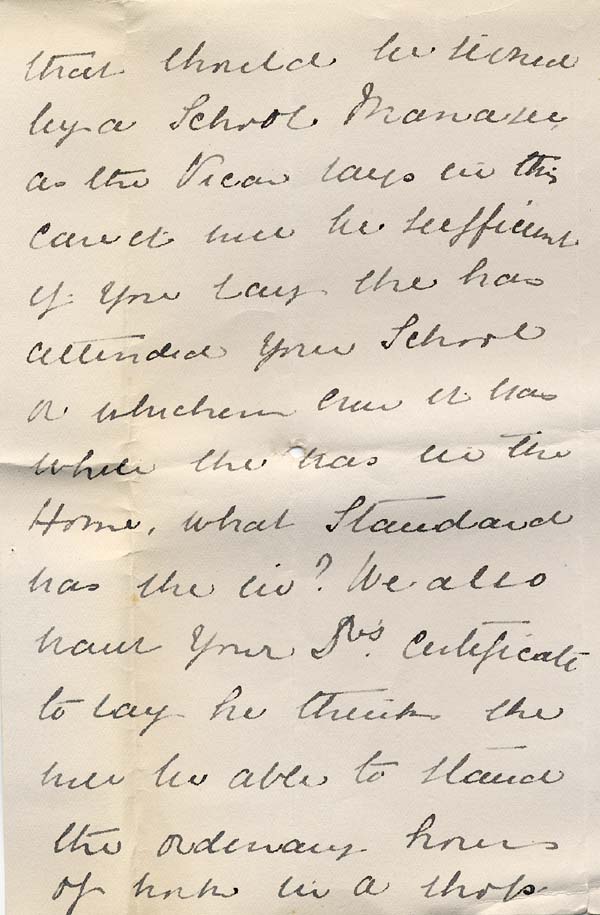 that should be signed
by a School Manager,
as the Vicar says in this
case it will be sufficient
if you say she has
attended your School
or whichever one it was
while she was in the
Home, what Standard
was she in? We also
want your Drs. Certificate
to say he thinks she
will be able to stand
the ordinary hours
of work in a shop